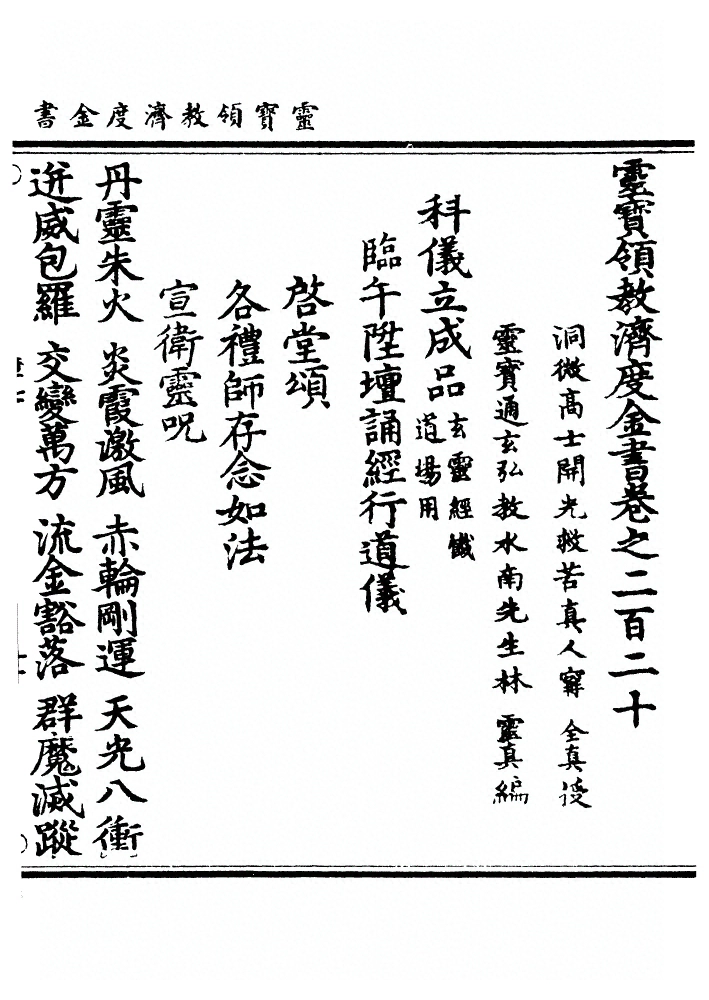 靈寶領教濟度金書
靈寶領教濟度金書卷之二百二十
洞微高士開光救苦真人寗全真授
靈寶通玄弘教水南先生林靈真編
科儀立成品玄靈經懺道場用
臨午陞壇誦經行道儀
啓堂頌
各禮師存念如法
宣衛靈呪
丹靈朱火 炎霞激風 赤輪剛運 天光八衝
迸威包羅 交變萬方 流金豁落 群魔滅蹤